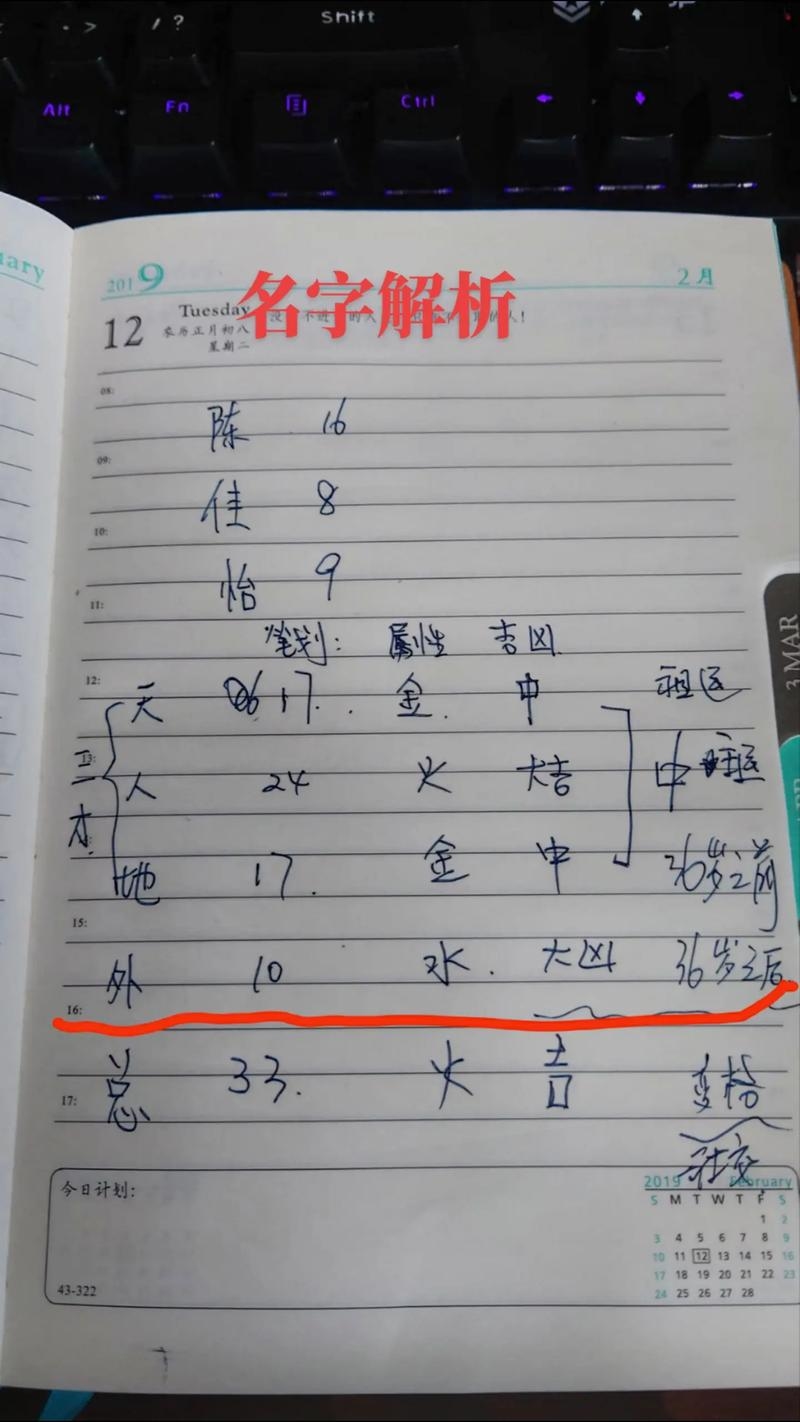 Shift
Alt Fn Ctrl
uary
2019 2月
名字解析
12 Tuesday
农历正月初八
星期二
08:
陈 16
09:
佳 8
10:
怡 9
11:
笔划: 属性 吉凶
12:
天 17. 金. 中 祖运
13:
三才
人 24 火 大吉 中 主运
地 17. 金 中 36岁之前
15:
外 10 水. 大凶 36岁之后
16:
总 33. 火 吉
17:
社交
今日计划:
43-322
2019 February
S M T W T F S
1 2
3 4 5 6 7 8 9
10 11 12 13 14 15 16
17 18 19 20 21 22 23
24 25 26 27 28
3 MAR